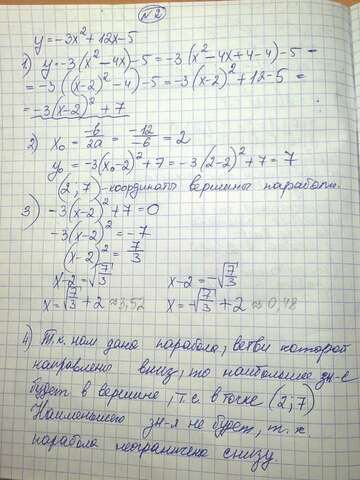 №2
y=-3x²+12x-5
1) y=-3(x²-4x)-5=-3(x²-4x+4-4)-5=
=-3((x-2)²-4)-5=-3(x-2)²+12-5=
=-3(x-2)²+7
2) x₀=-b/2a=-12/-6=2
y₀=-3(x₀-2)²+7=-3(2-2)²+7=7
(2;7)-координаты вершины параболы.
3) -3(x-2)²+7=0
-3(x-2)²=-7
(x-2)²=7/3
x-2=√7/3 x-2=-√7/3
x=√7/3+2≈3,52 x=-√7/3+2≈0,48
4) Т.к. нам дана парабола, ветви которой
направлены вниз, то наибольшее зн-е
будет в вершине, т.е. в точке (2;7)
Наименьшего зн-я не будет, т.к.
парабола неограничена снизу.